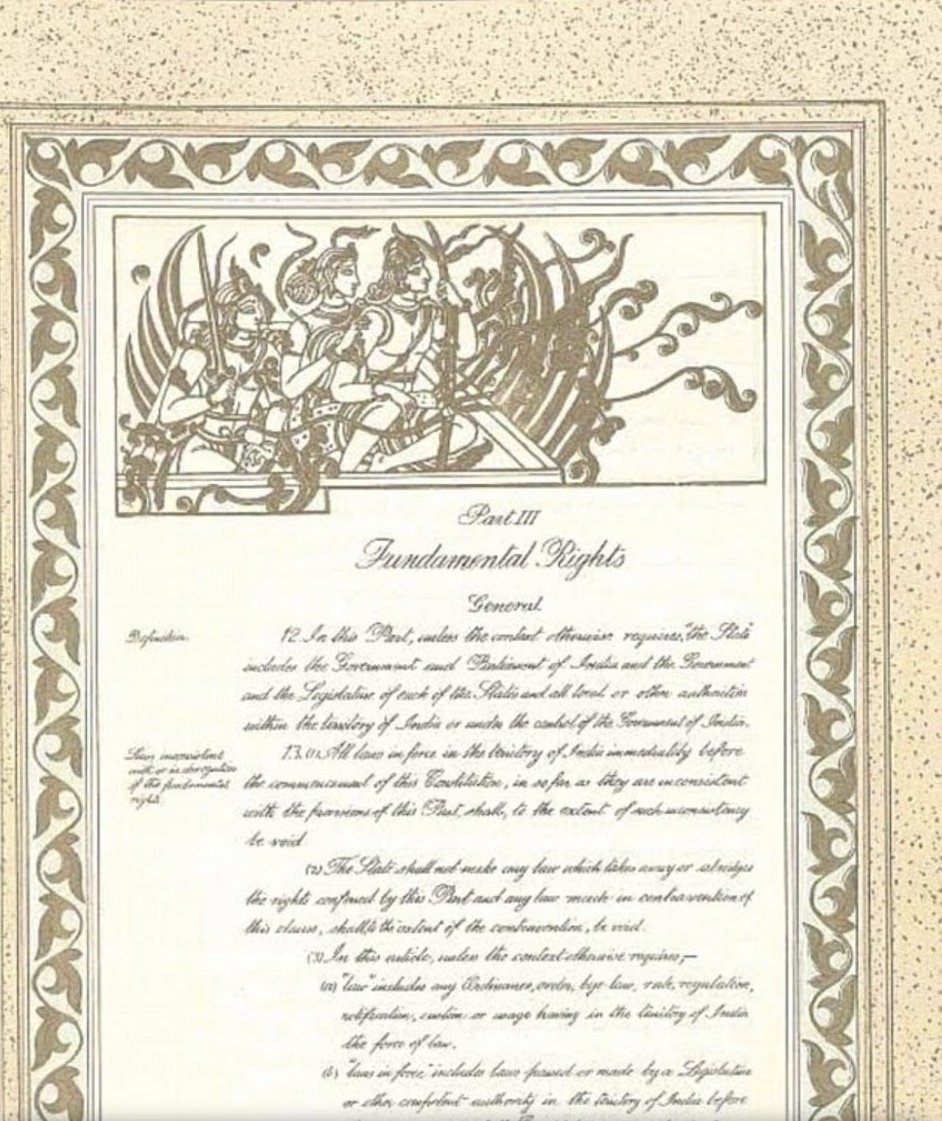 Part III
Fundamental Rights
General
Definition.
12. In this Part, unless the context otherwise requires, "the State"
includes the Government and Parliament of India and the Government
and the Legislature of each of the States and all local or other authorities
within the territory of India or under the control of the Government of India.
Laws inconsistent
with or in derogation
of the fundamental
rights.
13. (1) All laws in force in the territory of India immediately before
the commencement of this Constitution, in so far as they are inconsistent
with the provisions of this Part, shall, to the extent of such inconsistency
be void.
(2) The State shall not make any law which takes away or abridges
the rights conferred by this Part and any law made in contravention of
this clause, shall, to the extent of the contravention, be void.
(3) In this article, unless the context otherwise requires,—
(a) "law" includes any Ordinance, order, bye-law, rule, regulation,
notification, custom or usage having in the territory of India
the force of law.
(b) "laws in force" includes laws passed or made by a Legislature
or other competent authority in the territory of India before